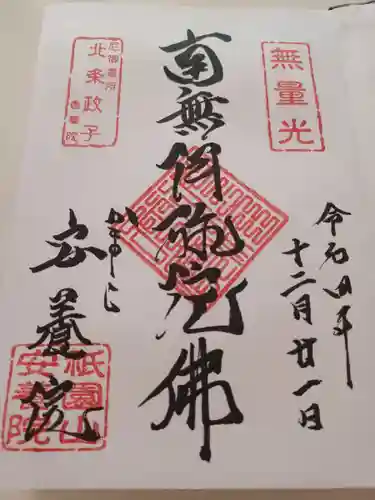 無量光
令和四年
十二月廿一日
南無阿弥陀佛
北条政子
かまくら
安養院
祇園山
安養院